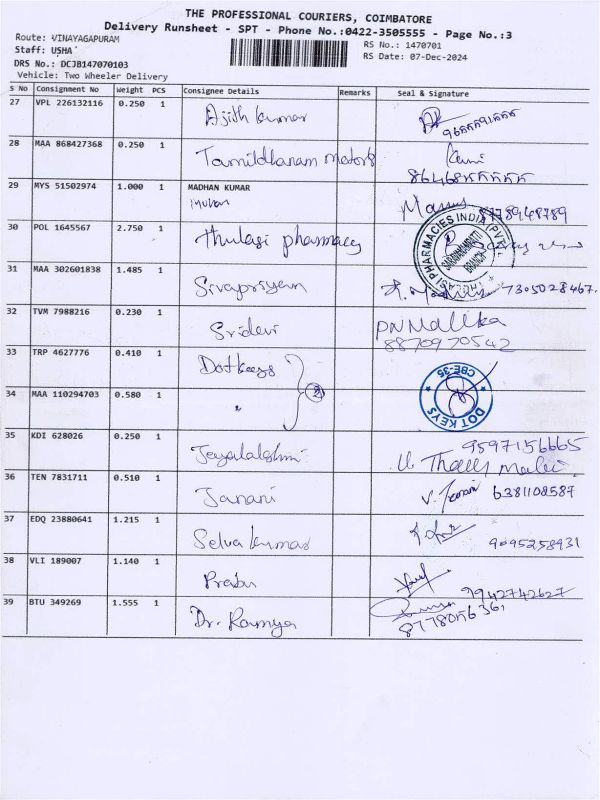 THE PROFESSIONAL COURIERS, COIMBATORE
Delivery Runsheet - SPT - Phone No.:0422-3505555 - Page No.:3
Route: VINAYAGAPURAM
RS No.: 1470701
Staff: USHA
RS Date: 07-Dec-2024
DRS No.: DCJB147070103
Vehicle: Two Wheeler Delivery
S No Consignment No Weight PCS Consignee Details Remarks Seal & Signature
27 VPL 226132116 0.250 1 Ajith kumar
28 MAA 868427368 0.250 1 Tamildharam Motors
29 MYS 51502974 1.000 1 MADHAN KUMAR
8778948789
30 POL 1645567 2.750 1 Thulasi pharmacy
THULASI PHARMACIES INDIA (PVT)
SARAVANAMPATTI
BRANCH
31 MAA 302601838 1.485 1 Sivapriyan 7305028467.
32 TVM 7988216 0.230 1 Sridevi PN Mallika
8870970542
33 TRP 4627776 0.410 1 Dotkeys
CBE-35
DOT KEYS
34 MAA 110294703 0.580 1 " 2
35 KDI 628026 0.250 1 Jeyalakshmi 9597156665
36 TEN 7831711 0.510 1 Janani V. Janani 6381108587
37 EDQ 23880641 1.215 1 Selva kumar 9095258931
38 VLI 189007 1.140 1 Prabu 9942742627
39 BTU 349269 1.555 1 Dr. Ramya 8778056361